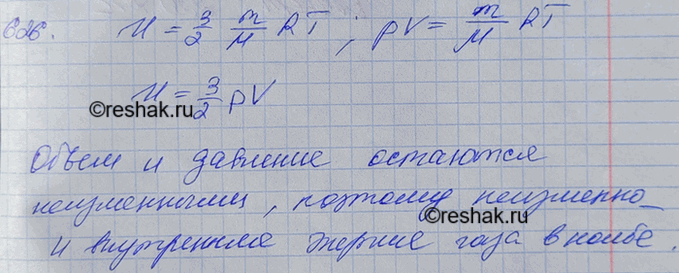 626. U = 3/2 m/M RT ; pV = m/M RT
U = 3/2 pV
©reshak.ru
Объем и давление остаются
неизменными, поэтому неизменно
©reshak.ru
и внутренняя энергия газа в колбе.